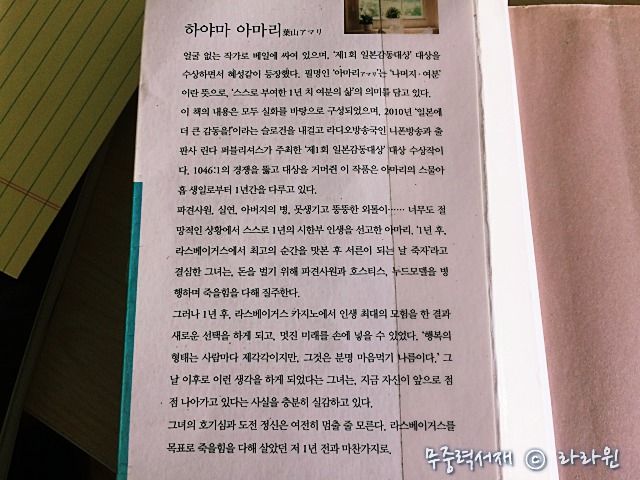 하야마 아마리 葉山アマリ
얼굴 없는 작가로 베일에 싸여 있으며, '제1회 일본감동대상' 대상을
수상하면서 혜성같이 등장했다. 필명인 '아마리アマリ'는 '나머지·여분'
이란 뜻으로, '스스로 부여한 1년 치 여분의 삶'의 의미를 담고 있다.
이 책의 내용은 모두 실화를 바탕으로 구성되었으며, 2010년 '일본에
더 큰 감동을!'이라는 슬로건을 내걸고 라디오방송국인 니폰방송과 출
판사 린다 퍼블리셔스가 주최한 '제1회 일본감동대상' 대상 수상작이
다. 1046:1의 경쟁을 뚫고 대상을 거머쥔 이 작품은 아마리의 스물아
홉 생일로부터 1년간을 다루고 있다.
파견사원, 실연, 아버지의 병, 못생기고 뚱뚱한 외톨이…… 너무도 절
망적인 상황에서 스스로 1년의 시한부 인생을 선고한 아마리. '1년 후,
라스베이거스에서 최고의 순간을 맛본 후 서른이 되는 날 죽자'라고
결심한 그녀는, 돈을 벌기 위해 파견사원과 호스티스, 누드모델을 병
행하며 죽을힘을 다해 질주한다.
그러나 1년 후, 라스베이거스 카지노에서 인생 최대의 모험을 한 결과
새로운 선택을 하게 되고, 멋진 미래를 손에 넣을 수 있었다. '행복의
형태는 사람마다 제각각이지만, 그것은 분명 마음먹기 나름이다.' 그
날 이후로 이런 생각을 하게 되었다는 그녀는, 지금 자신이 앞으로 점
점 나아가고 있다는 사실을 충분히 실감하고 있다.
그녀의 호기심과 도전 정신은 여전히 멈출 줄 모른다. 라스베이거스를
목표로 죽을힘을 다해 살았던 저 1년 전과 마찬가지로.
무중력서재 © 라라윈